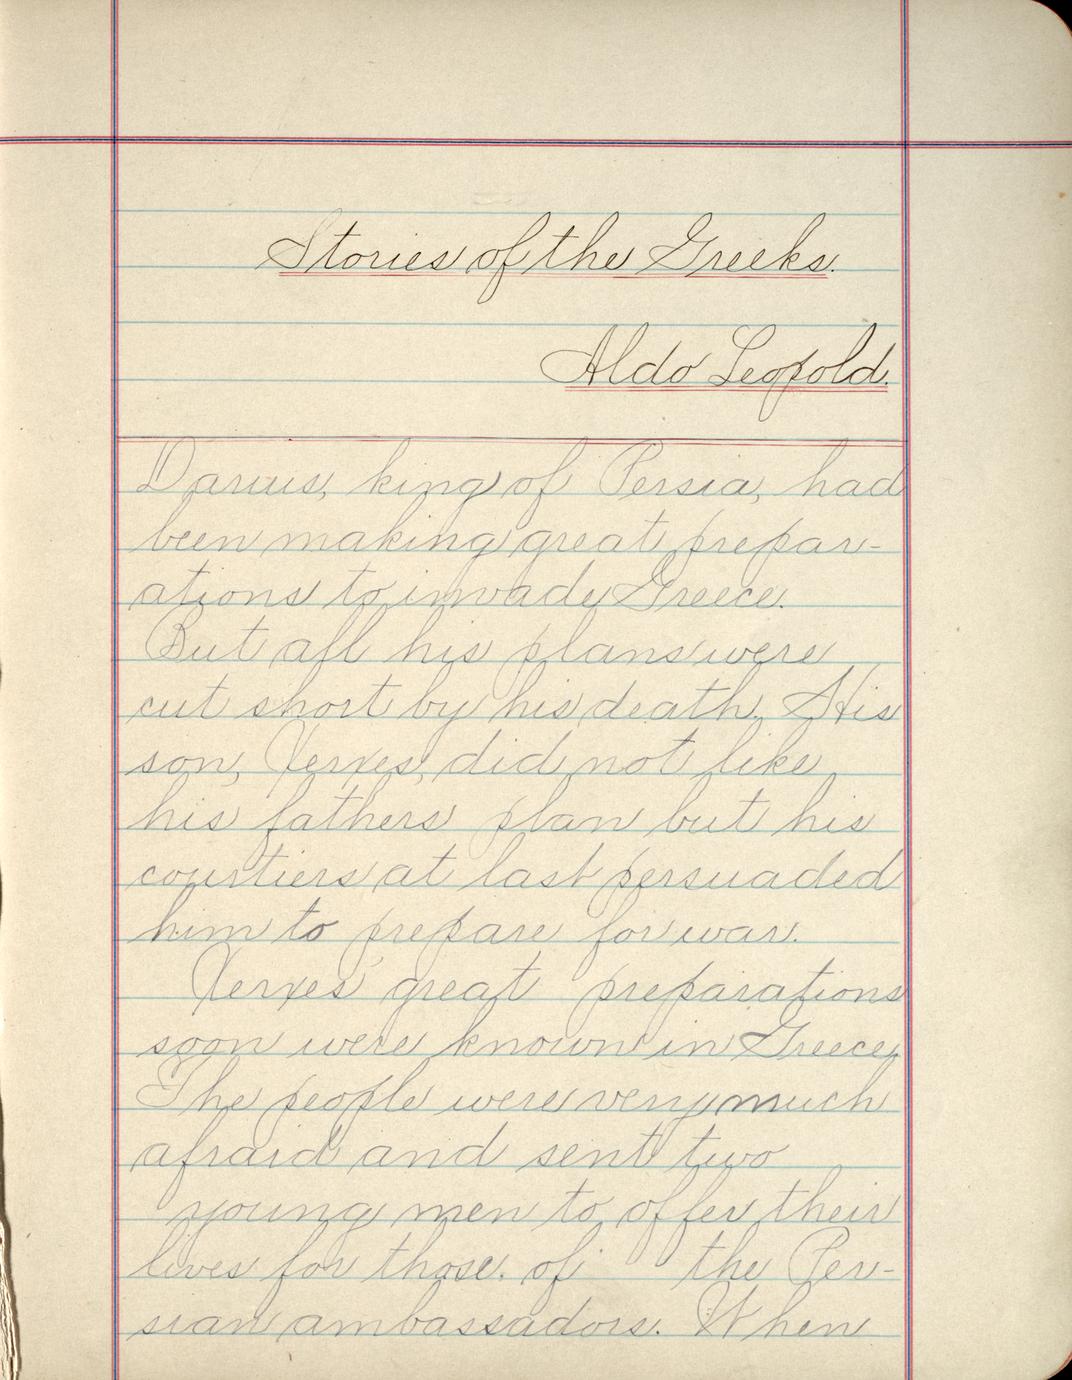 Stories of the Greeks.
Aldo Leopold.
Darius, king of Persia, had
been making great prepar-
ations to invade Greece.
But all his plans were
cut short by his death. His
son, Xerxes, did not like
his fathers plan but his
courtiers at last persuaded
him to prepare for war.
Xerxes' great preparations
soon were known in Greece.
The people were very much
afraid and sent two
young men to offer their
lives for those. of the Per-
sian ambassadors. When